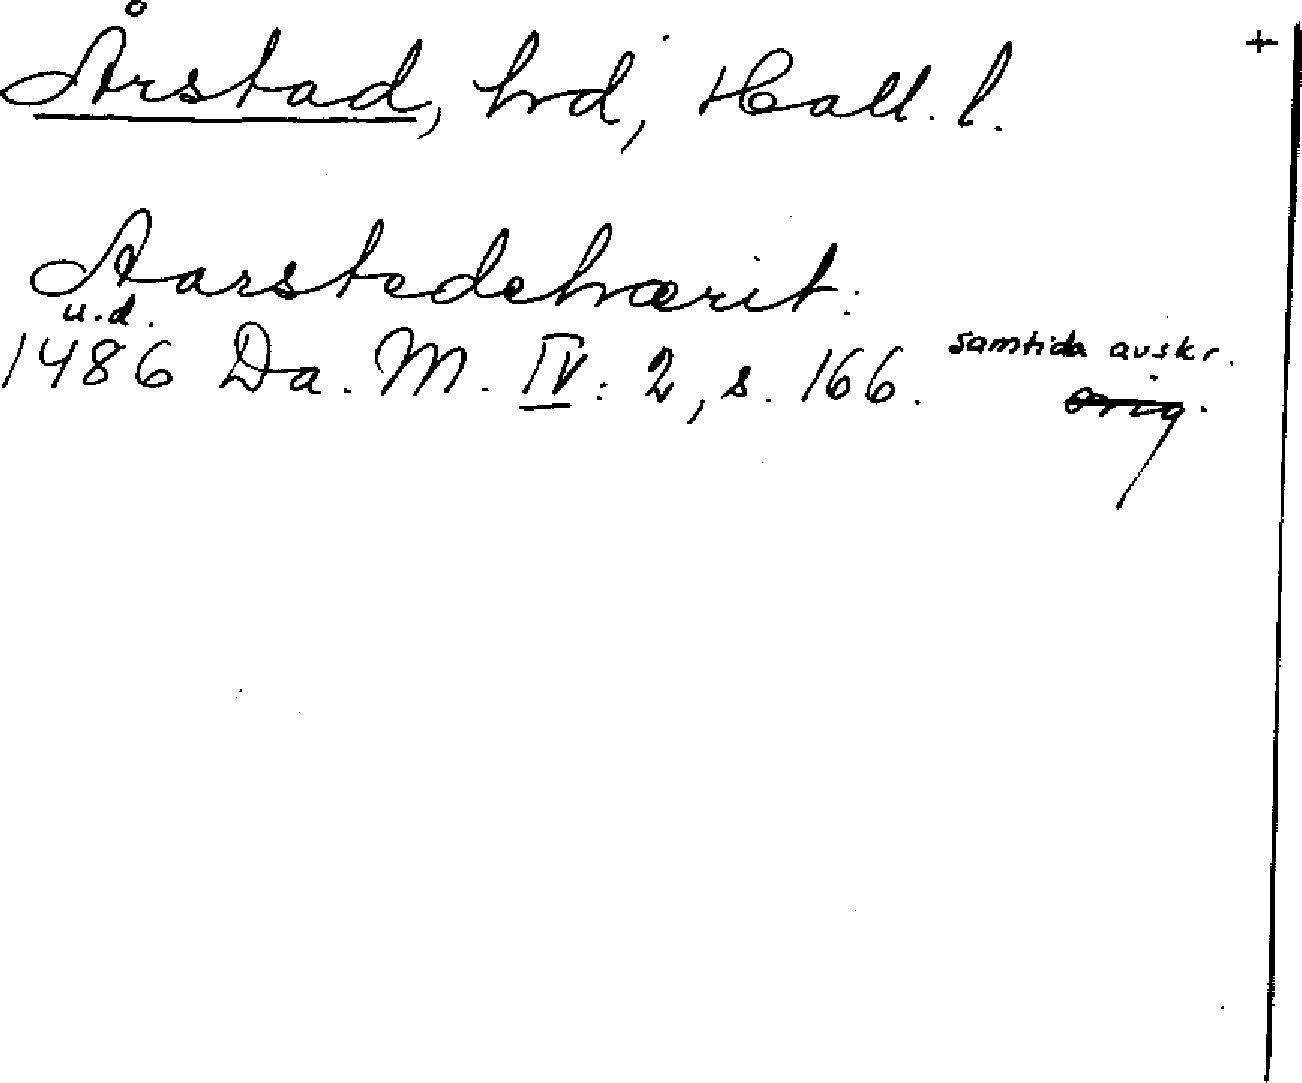 Årstad, hd, Hall. l. +
Aarstedehærit.
u.d.
1486 Da. M. IV: 2, s. 166. samtida avskr.
orig.